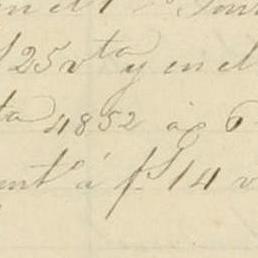 en el
125 vta y en el
ta 4852 a 6
ent á f. 14 v